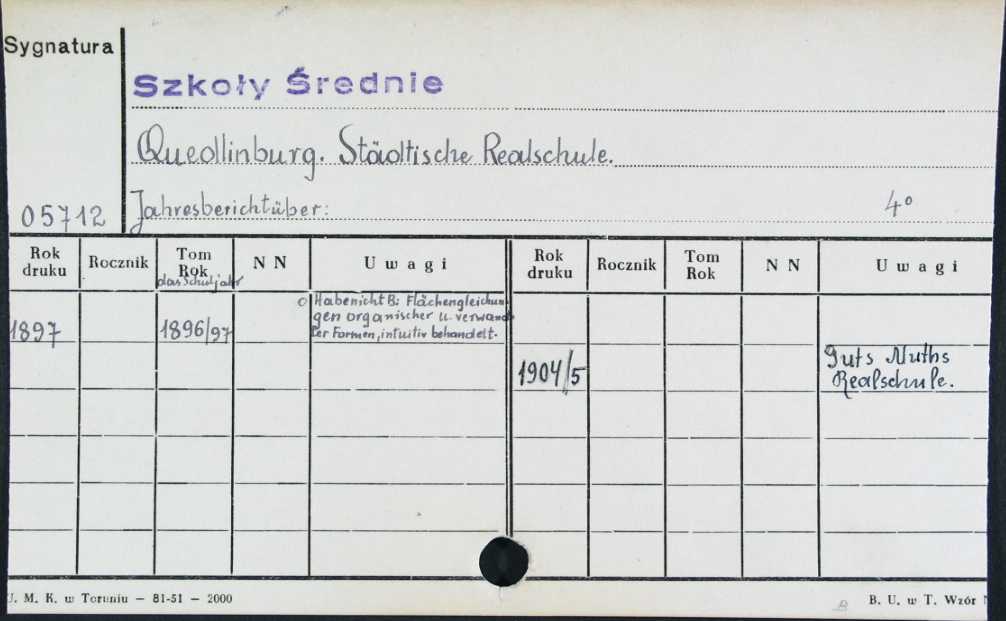 Sygnatura
Szkoły Średnie
Quedlinburg. Städtische Realschule.
05712
Jahresbericht über:
4°
Rok druku
Rocznik
Tom Rok
das Schuljahr
N N
Uwagi
Rok druku
Rocznik
Tom Rok
N N
Uwagi
1897
1896/97
o Habenicht B: Flächengleichun-
gen organischer u. verwand-
ter Formen, intuitiv behandelt.
1904/5
Guts Muths
Realschule.
U. M. K. w Toruniu – 81-51 – 2000
B
B. U. w T. Wzór